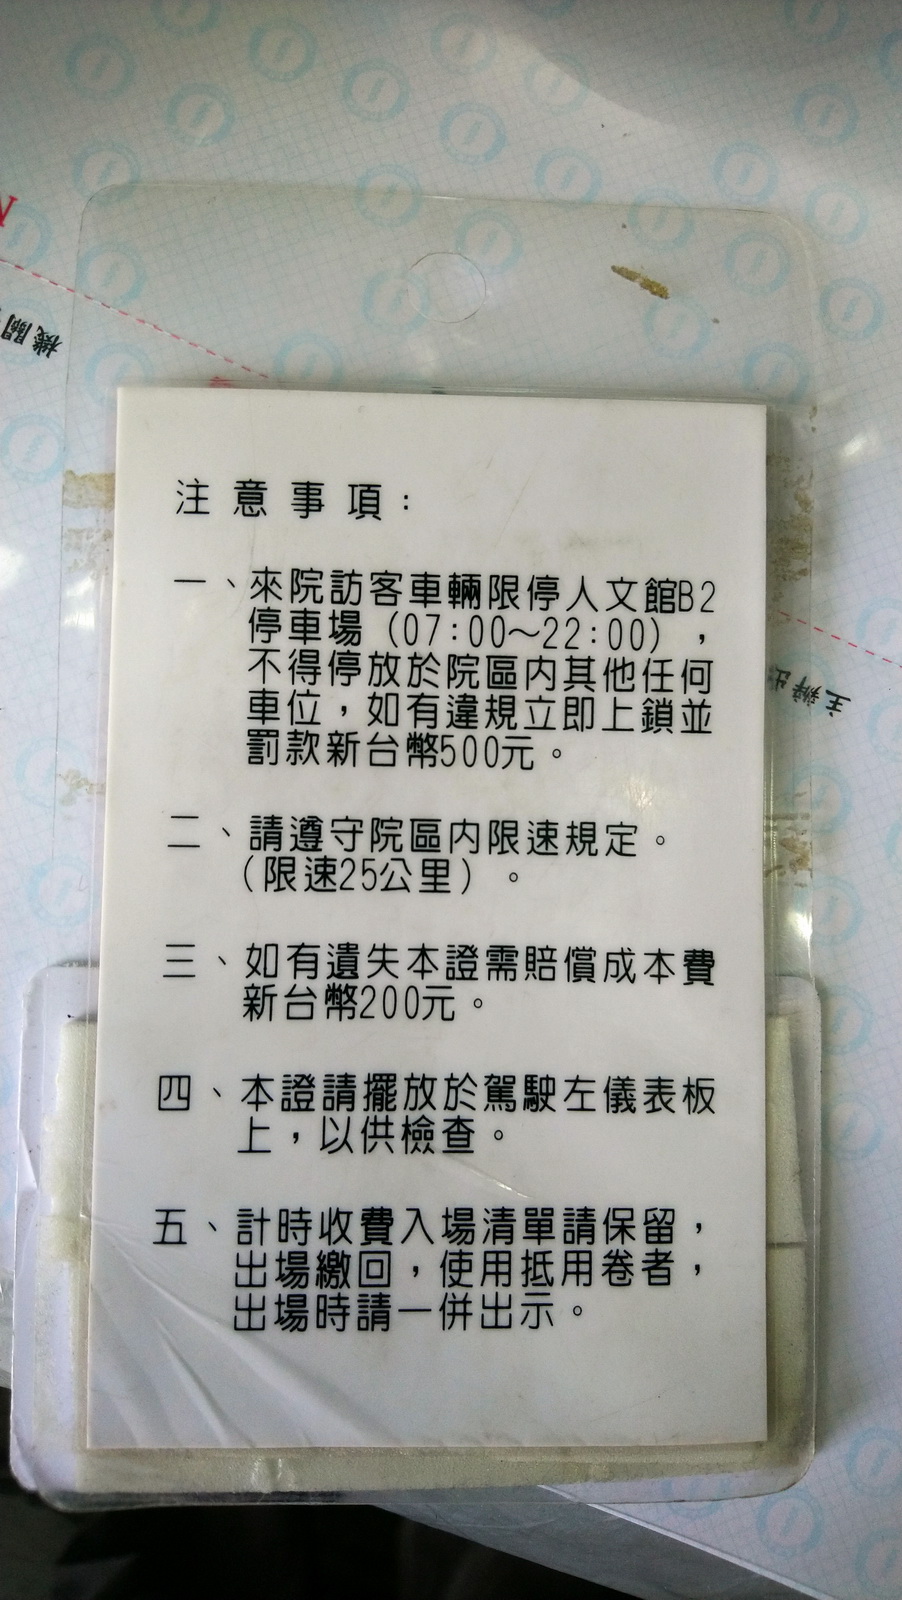 機關
注意事項：
一、來院訪客車輛限停人文館B2
停車場（07:00～22:00），
不得停放於院區內其他任何
車位，如有違規立即上鎖並
罰款新台幣500元。
二、請遵守院區內限速規定。
（限速25公里）。
三、如有遺失本證需賠償成本費
新台幣200元。
四、本證請擺放於駕駛左儀表板
上，以供檢查。
五、計時收費入場清單請保留，
出場繳回，使用抵用卷者，
出場時請一併出示。
主辦出